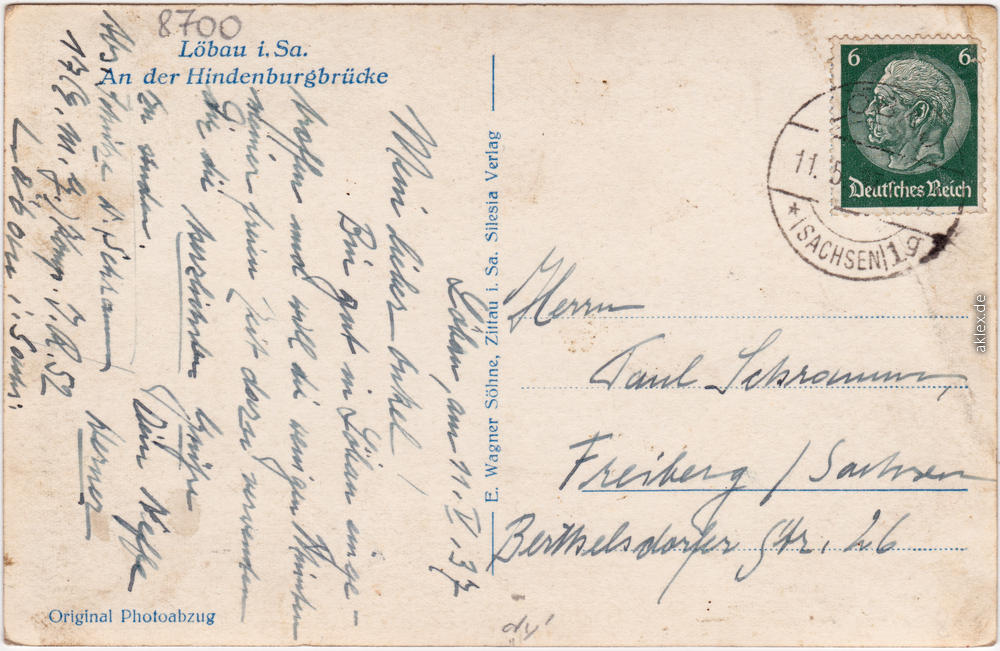 8700
Löbau i. Sa.
An der Hindenburgbrücke
E. Wagner Söhne, Zittau i. Sa. Silesia Verlag
Original Photoabzug
6 6
Deutsches Reich
11. 5
* (SACHSEN) 1 g
Löbau, am 11. V. 37
Mein lieber Onkel!
Bin gut in Löbau einge-
troffen und will die wenigen Minuten
meiner freien Zeit dazu verwenden
dir die herzlichsten Grüße
zu senden.
Dein Neffe
Werner
Abs. Schütze W. Schramm
Löbau i. Sachs.
Herrn
Paul Schramm,
Freiberg / Sachsen
Berthelsdorfer Str. 26
aklex.de